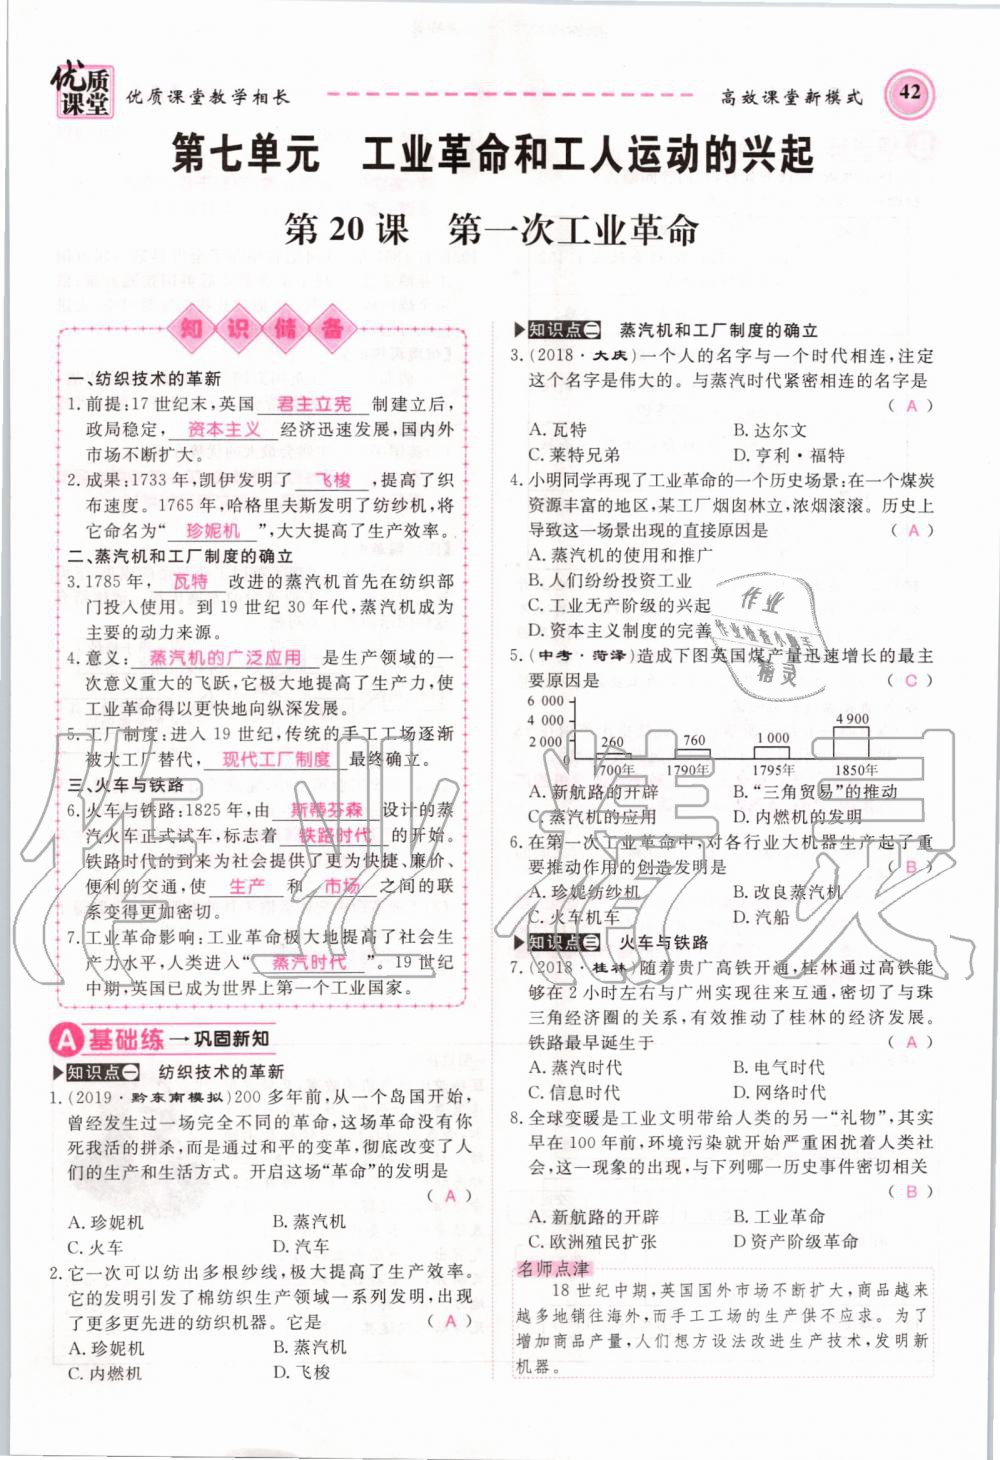 优质课堂
优质课堂教学相长
高效课堂新模式
42
第七单元 工业革命和工人运动的兴起
第20课 第一次工业革命
知识储备
一、纺织技术的革新
1.前提:17世纪末,英国 君主立宪 制建立后,
政局稳定, 资本主义 经济迅速发展,国内外
市场不断扩大。
2.成果:1733年,凯伊发明了 飞梭 ,提高了织
布速度。1765年,哈格里夫斯发明了纺纱机,将
它命名为“ 珍妮机 ”,大大提高了生产效率。
二、蒸汽机和工厂制度的确立
3.1785年, 瓦特 改进的蒸汽机首先在纺织部
门投入使用。到19世纪30年代,蒸汽机成为
主要的动力来源。
4.意义: 蒸汽机的广泛应用 是生产领域的一
次意义重大的飞跃,它极大地提高了生产力,使
工业革命得以更快地向纵深发展。
5.工厂制度:进入19世纪,传统的手工工场逐渐
被大工厂替代, 现代工厂制度 最终确立。
三、火车与铁路
6.火车与铁路:1825年,由 斯蒂芬森 设计的蒸
汽火车正式试车,标志着 铁路时代 的开始。
铁路时代的到来为社会提供了更为快捷、廉价、
便利的交通,使 生产 和 市场 之间的联
系变得更加密切。
7.工业革命影响:工业革命极大地提高了社会生
产力水平,人类进入“ 蒸汽时代 ”。19世纪
中期,英国已成为世界上第一个工业国家。
A 基础练 → 巩固新知
知识点一 纺织技术的革新
1.(2019·黔东南模拟)200多年前,从一个岛国开始,
曾经发生过一场完全不同的革命,这场革命没有你
死我活的拼杀,而是通过和平的变革,彻底改变了人
们的生产和生活方式。开启这场“革命”的发明是
( A )
A.珍妮机 B.蒸汽机
C.火车 D.汽车
2.它一次可以纺出多根纱线,极大提高了生产效率。
它的发明引发了棉纺织生产领域一系列发明,出现
了更多更先进的纺织机器。它是 ( A )
A.珍妮机 B.蒸汽机
C.内燃机 D.飞梭
知识点二 蒸汽机和工厂制度的确立
3.(2018·大庆)一个人的名字与一个时代相连,注定
这个名字是伟大的。与蒸汽时代紧密相连的名字是
( A )
A.瓦特 B.达尔文
C.莱特兄弟 D.亨利·福特
4.小明同学再现了工业革命的一个历史场景:在一个煤炭
资源丰富的地区,某工厂烟囱林立,浓烟滚滚。历史上
导致这一场景出现的直接原因是 ( A )
A.蒸汽机的使用和推广
B.人们纷纷投资工业
C.工业无产阶级的兴起
D.资本主义制度的完善
5.(中考·菏泽)造成下图英国煤产量迅速增长的最主
要原因是 ( C )
6 000
4 000
2 000
260 760 1 000 4 900
700年 1790年 1795年 1850年
A.新航路的开辟 B.“三角贸易”的推动
C.蒸汽机的应用 D.内燃机的发明
6.在第一次工业革命中,对各行业大机器生产起了重
要推动作用的创造发明是 ( B )
A.珍妮纺纱机 B.改良蒸汽机
C.火车机车 D.汽船
知识点三 火车与铁路
7.(2018·桂林)随着贵广高铁开通,桂林通过高铁能
够在2小时左右与广州实现往来互通,密切了与珠
三角经济圈的关系,有效推动了桂林的经济发展。
铁路最早诞生于 ( A )
A.蒸汽时代 B.电气时代
C.信息时代 D.网络时代
8.全球变暖是工业文明带给人类的另一“礼物”,其实
早在100年前,环境污染就开始严重困扰着人类社
会,这一现象的出现,与下列哪一历史事件密切相关
( B )
A.新航路的开辟 B.工业革命
C.欧洲殖民扩张 D 资产阶级革命
名师点津
18世纪中期,英国国外市场不断扩大,商品越来
越多地销往海外,而手工工场的生产供不应求。为了
增加商品产量,人们想方设法改进生产技术,发明新
机器。
作业
作业检查小助手
精灵
作业精灵